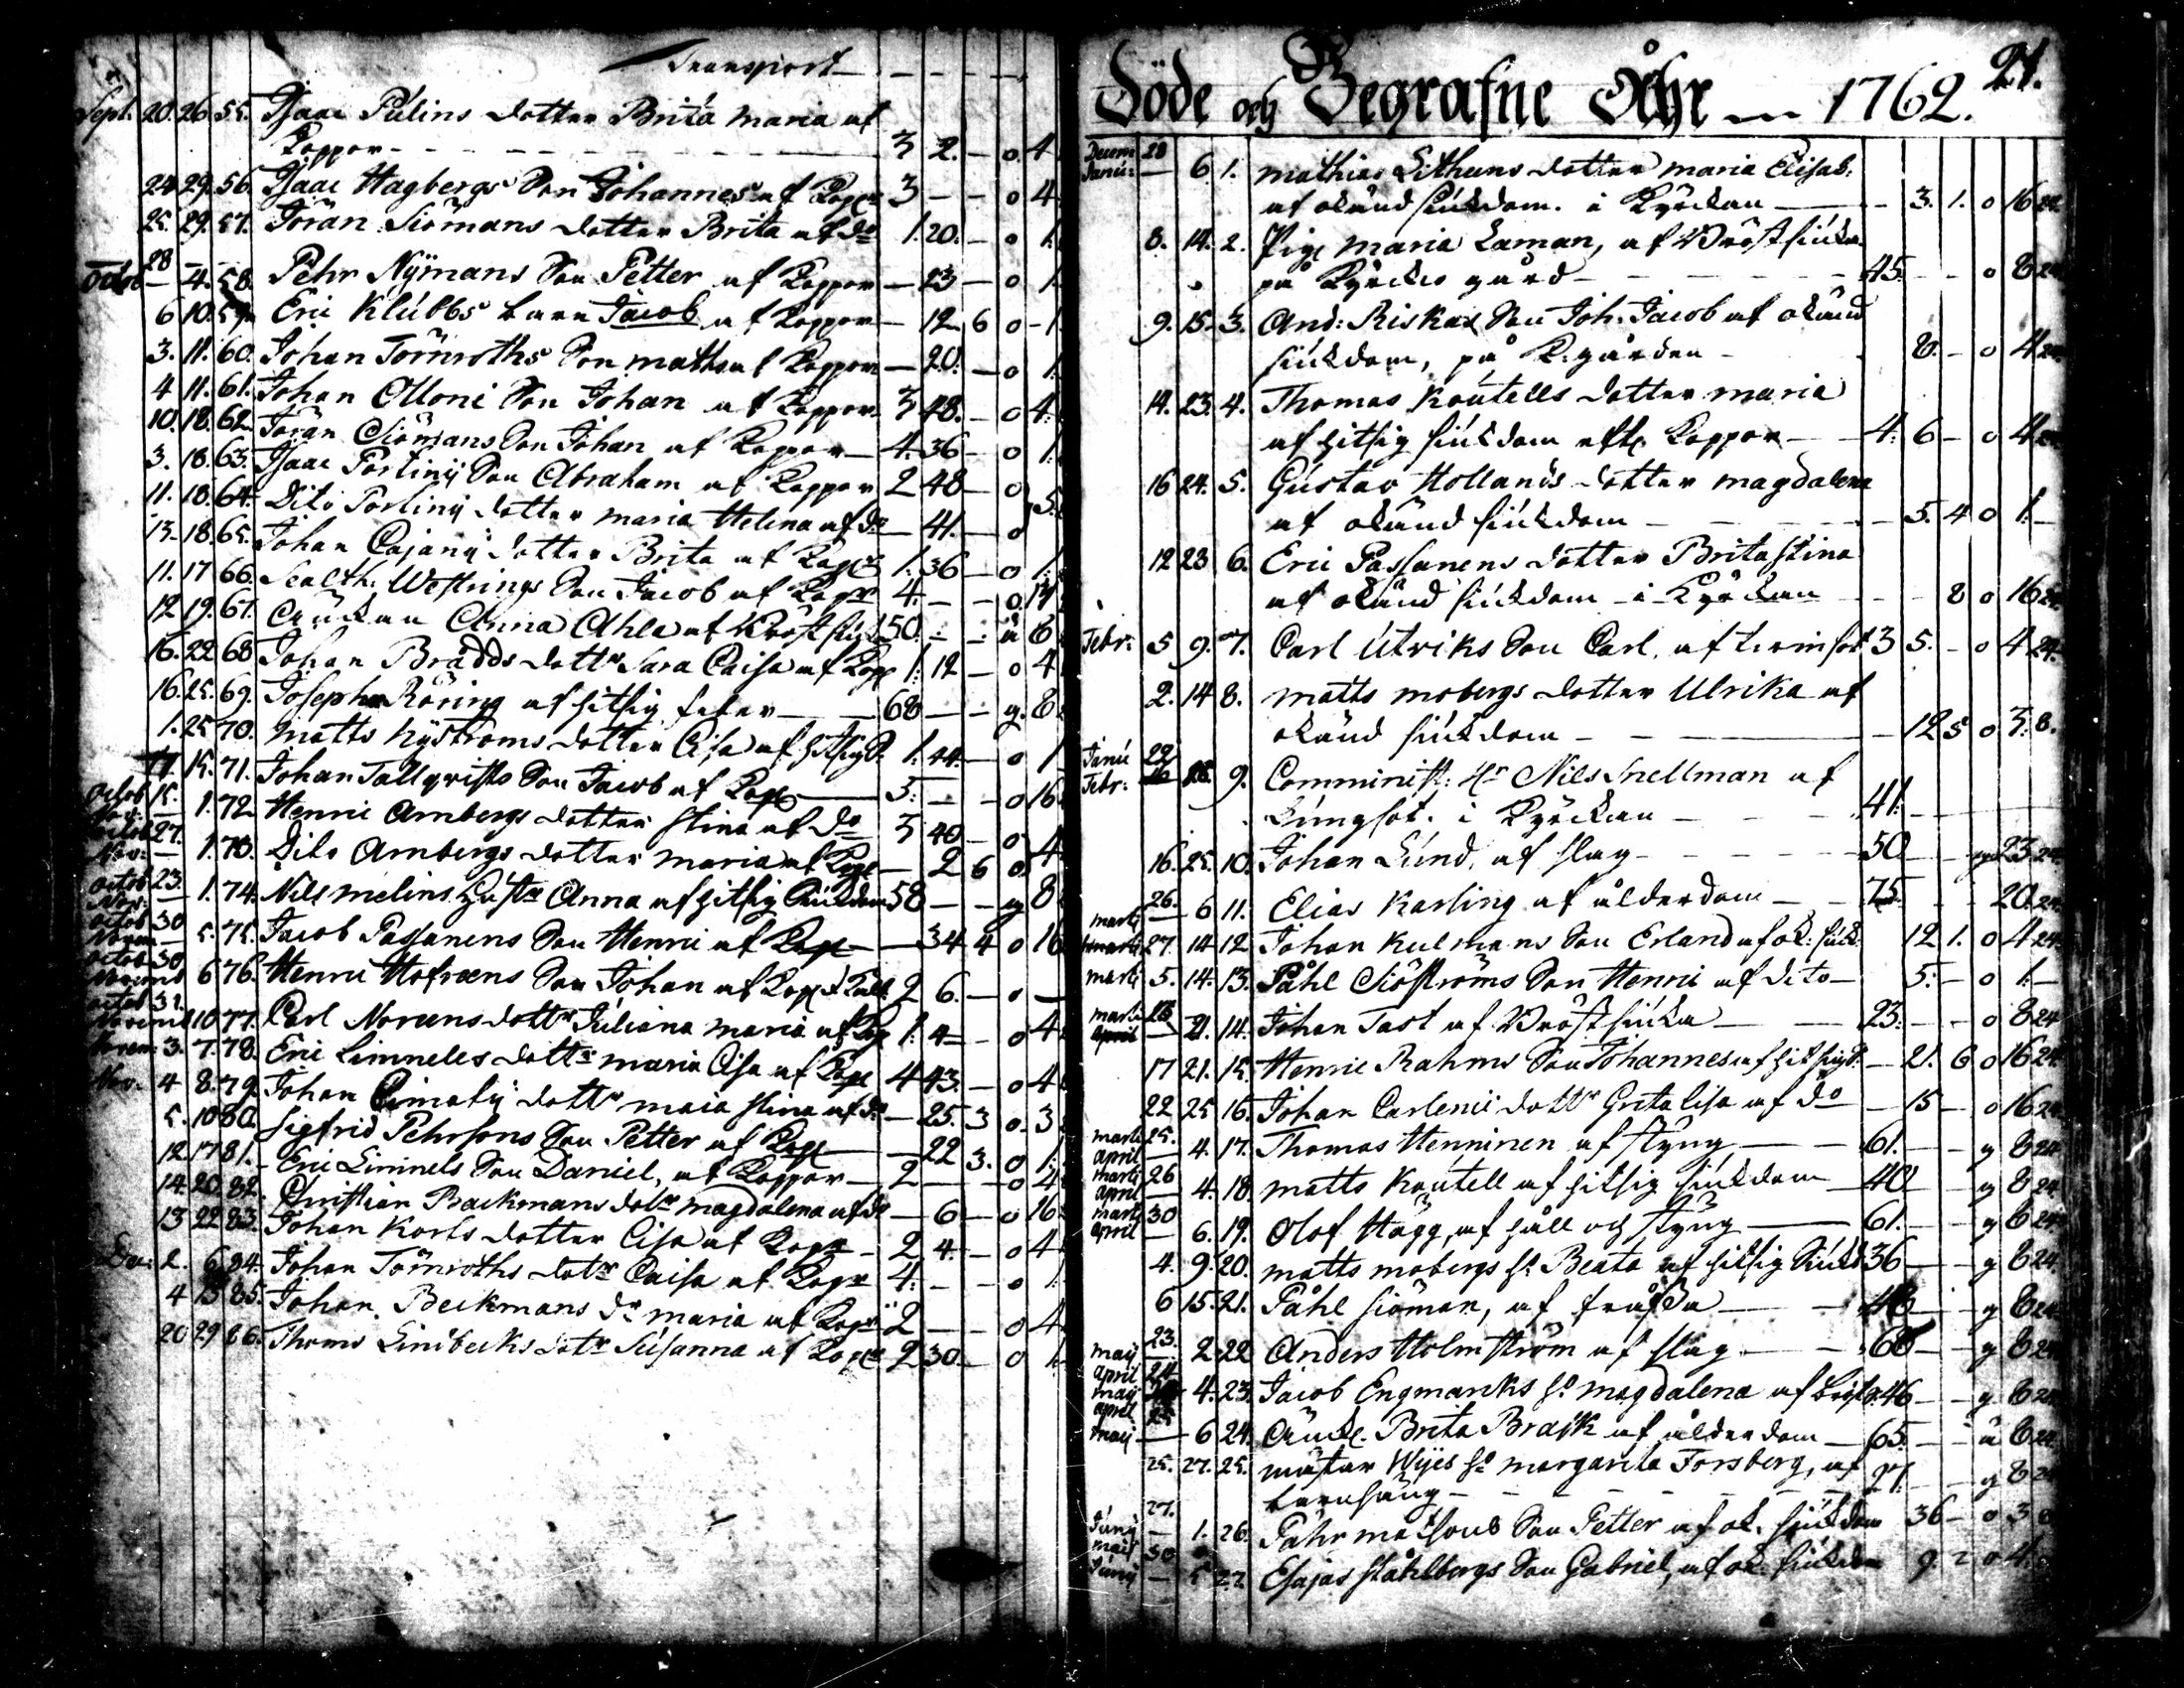 Transport
Sept. 20. 26 55. Isaac Pulins dotter Brita Maria af
Koppor 3 2. - o. 4
24 29. 56. Isaac Hagbergs Son Johannes af Kopp 3 - - o 4
25. 29. 57. Jöran Siömans dotter Brita af do 1. 20. - o 1.
28
Octob - 4. 58. Pehr Nÿmans Son Petter af Koppor - 23 - o 1.
6 10. 59. Eric Klubbs barn Jacob af Koppor - 12 6 o - 1
3. 11. 60. Johan Törnroths Son Matts af Koppor - 20. - o 1.
4 11. 61. Johan Olloni Son Johan af Koppor 3 48. - o 4.
10. 18. 62. Jöran Siömans Son Johan af Koppor 4. 36 - o 1.
3. 18. 63. Isaac Portinÿ Son Abraham af Koppor 2 48 - o
11. 18. 64. Dito Portinÿ dotter Maria Helena af do - 41. - o 5.
13. 18. 65. Johan Cajanÿ dotter Brita af Kopp 1. 36 - o 1.
11. 17 66. Westrings Son Jacob af Kopr 4. - - o
12 19. 67. Änckan Anna Ahla af Bröstsiuk 50. - - ä 8
16. 22 68 Johan Brådds dottr Sara Caisa af Kopp 1. 12 - o 4
16. 25. 69. Joseph Röring af hitsig feber 68 - - g. 8.
1. 25 70. Matts Nÿströms dotter Lisa af hitsig 1. 44 - o 1
15. 71. Johan Tallqvists Son Jacob af Kopp 3. - - o 16
Octob 15.
Nov: - 1. 72. Henric Arnbergs dotter Stina af Do 3 40 - o
Octob 27.
Nov: - 1. 73. Dito Arnbergs dotter Maria af Kopp - 2 6 o 4
Octob 23.
Nov: - 1. 74. Nils Melins Hustr Anna af hitsig Siukdom 58 - - g 8
Octob 30
Novem - 5. 75. Jacob Passanens Son Henric af Kopp - 34 4 o 16
Octob 30
Novemb 6 76. Henric Hofreens Son Johan af Kopp 2 6. - o -
Octob 31.
Novemb 10 77. Carl Noreens dottr Juliana Maria af Kop 1. 4 - o 4
Novem 3. 7. 78. Eric Limneles dottr Maria Lisa af Kopp 4 43. - o 4
Nov: 4 8. 79. Johan dottr Maia Stina af do - 25. 3 o. 3
5. 10 80. Sigfrid Pehrsons Son Petter af Kopp - 22 3. o 1.
12. 17 81. Eric Limnels Son Daniel, af Koppor 2 - - o 4
14. 20. 82. Christian Backmans dotr Magdalena af do - 6 - o 16
13 22 83. Johan Korls dotter Lisa af Kopr 2 4 - o 4
Dec: 2. 6. 84. Johan Törnroths dotr Caisa af Kopr 4. - - o 1.
4 13 85. Johan Beckmans dr Maria af Kopr 2 - - o 4
20 29 86. Thoms Lindbecks dotr Susanna af Kopr 2 30. - o 1.
21.
Döde och Begrafne Åhr 1762.
Decem 28
Janu: - 6. 1. Mathias Lithens dotter Maria Elisab:
af okänd siukdom. i Kyrckan 3. 1. o 16 24
8. 14. 2. Pig. Maria Laman, af Bröstsiuka
på Kyrcko gård 45. - - o 8 24
9. 15. 3. And: Riskas Son Joh. Jacob af okänd
siukdom, på K. gården 8. - o 4 24.
14. 23. 4. Thomas Koutells dotter Maria
af hitsig siukdom efter Koppor 4. 6 - o 4 24
16 24. 5. Gustav Hollanus dotter Magdalena
af okänd siukdom - 5. 4 o 1. -
12 23 6. Eric Passanens dotter Brita Stina
af okänd siukdom - i Kyrckan - - 8 o 16 24.
Febr: 5 9. 7. Carl Utriks Son Carl. af 3 5. - o 4 24.
2. 14 8. Matts Mobergs dotter Ulrika af
okänd siukdom - 12 5 o 3. 8.
Janu 22
Febr: 9. Comminist: Hr Nils Snellman af
Lungsot. i Kyrckan 41.
16. 25. 10. Johan Lund, af slag 50 23 24.
26.
Marti - 6 11. Elias Karling af ålderdom 75. - - 20. 24.
27. 14 12 Johan Kulmans Son Erland af ok: siuk. 12 1. o 4 24.
Marti 5. 14. 13. Påhl Siöströms Son Henric af dito - 5. - o 1. -
Marti
April - 2. 14. Johan Tast af Bröstsiuka 23. - - o 8 24
17 21. 15. Henric Rahms Son Johannes af hitsigt - 21. 6 o 16 24.
22 25 16. Johan Carlenii dottr Greta Lisa af do - 15 - o 16 24
Marti 25.
April - 4. 17. Thomas Henninen af styng 61. - - g 8 24
Marti 26
April - 4. 18. Matts Koutell af hitsig siukdom 40 - - g 8 24
Marti 30
April - 6. 19. Olof Hägg, af håll och styng 61. - - g 8 24.
4. 9. 20. Matts Mobergs h: Beata af hitsig Siukd 36 - - g 8 24.
6 15. 21. Påhl Siöman, af - - g 8 24
23.
Maij - 2 22 Anders Holmström af slag 68 - - g 8 24
April 24
Maij 4. 23. Jacob Engmarks h: Magdalena af 46 - - g 8 24
April 25
Maij - 6 24. Änck. Brita Brask af ålderdom 65. - - ä 8 24
25. 27. 25. Mäster Wijes h: Margareta Forsberg, af
barnsäng 27. - - g 8 24
27.
Junij - 1. 26. Påhr Matsons Son Petter af ok. siukdom 36 - o 3 8
Maij 30
Junij - 5 27. Esajas Ståhlbergs Son Gabriel, af ok. siukdom 9. 2 o 4.